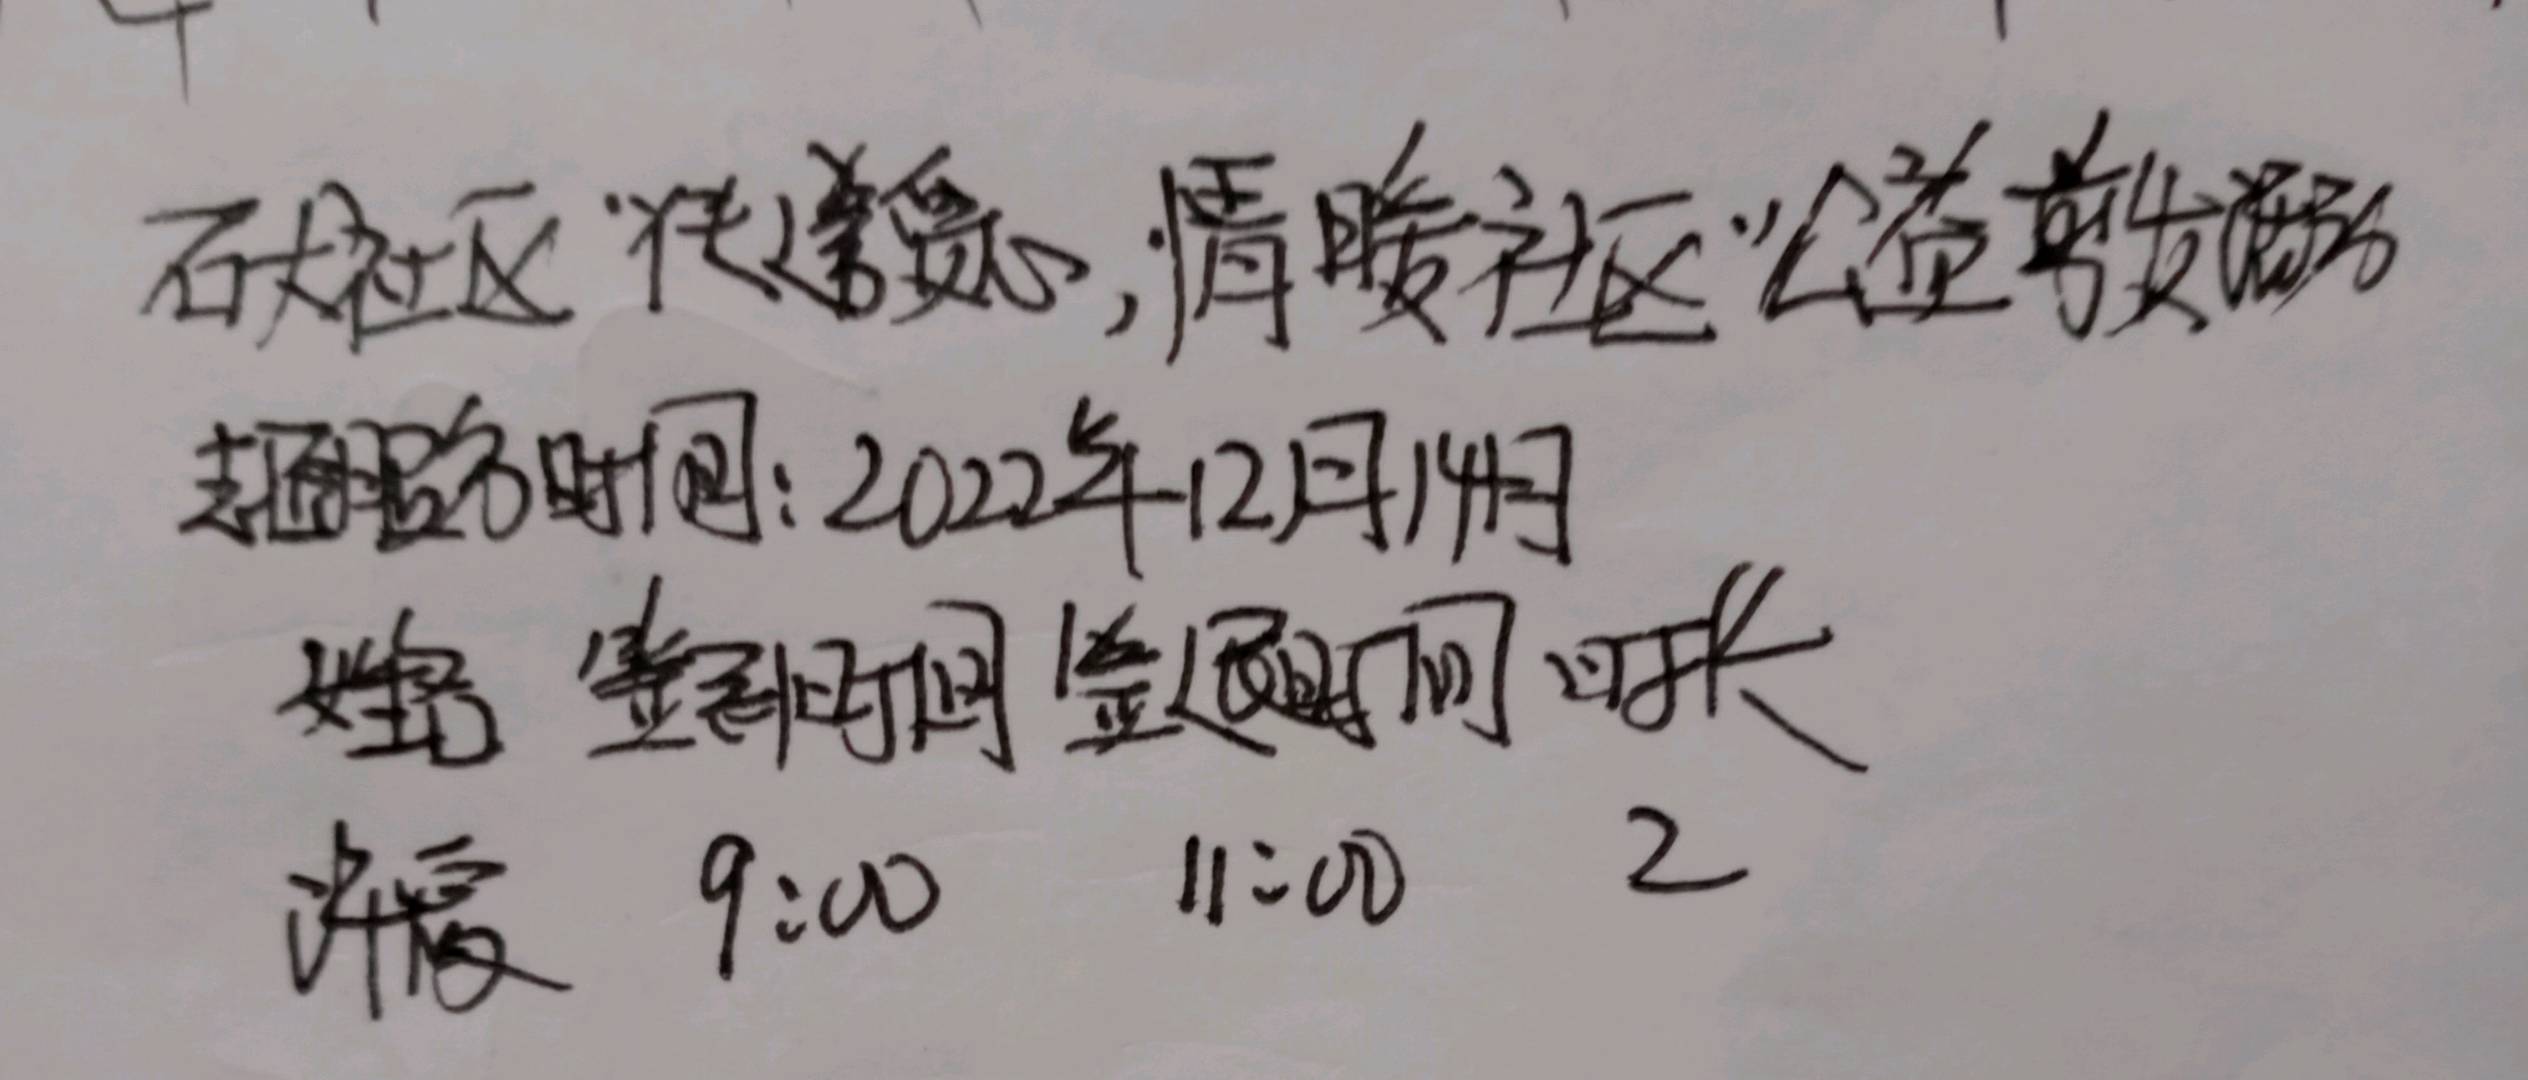 石犬社区“传递爱心,情暖社区”公益剪发活动
志愿服务时间:2022年12月14日
姓名 签到时间 签退时间 时长
许霞 9:00 11:00 2